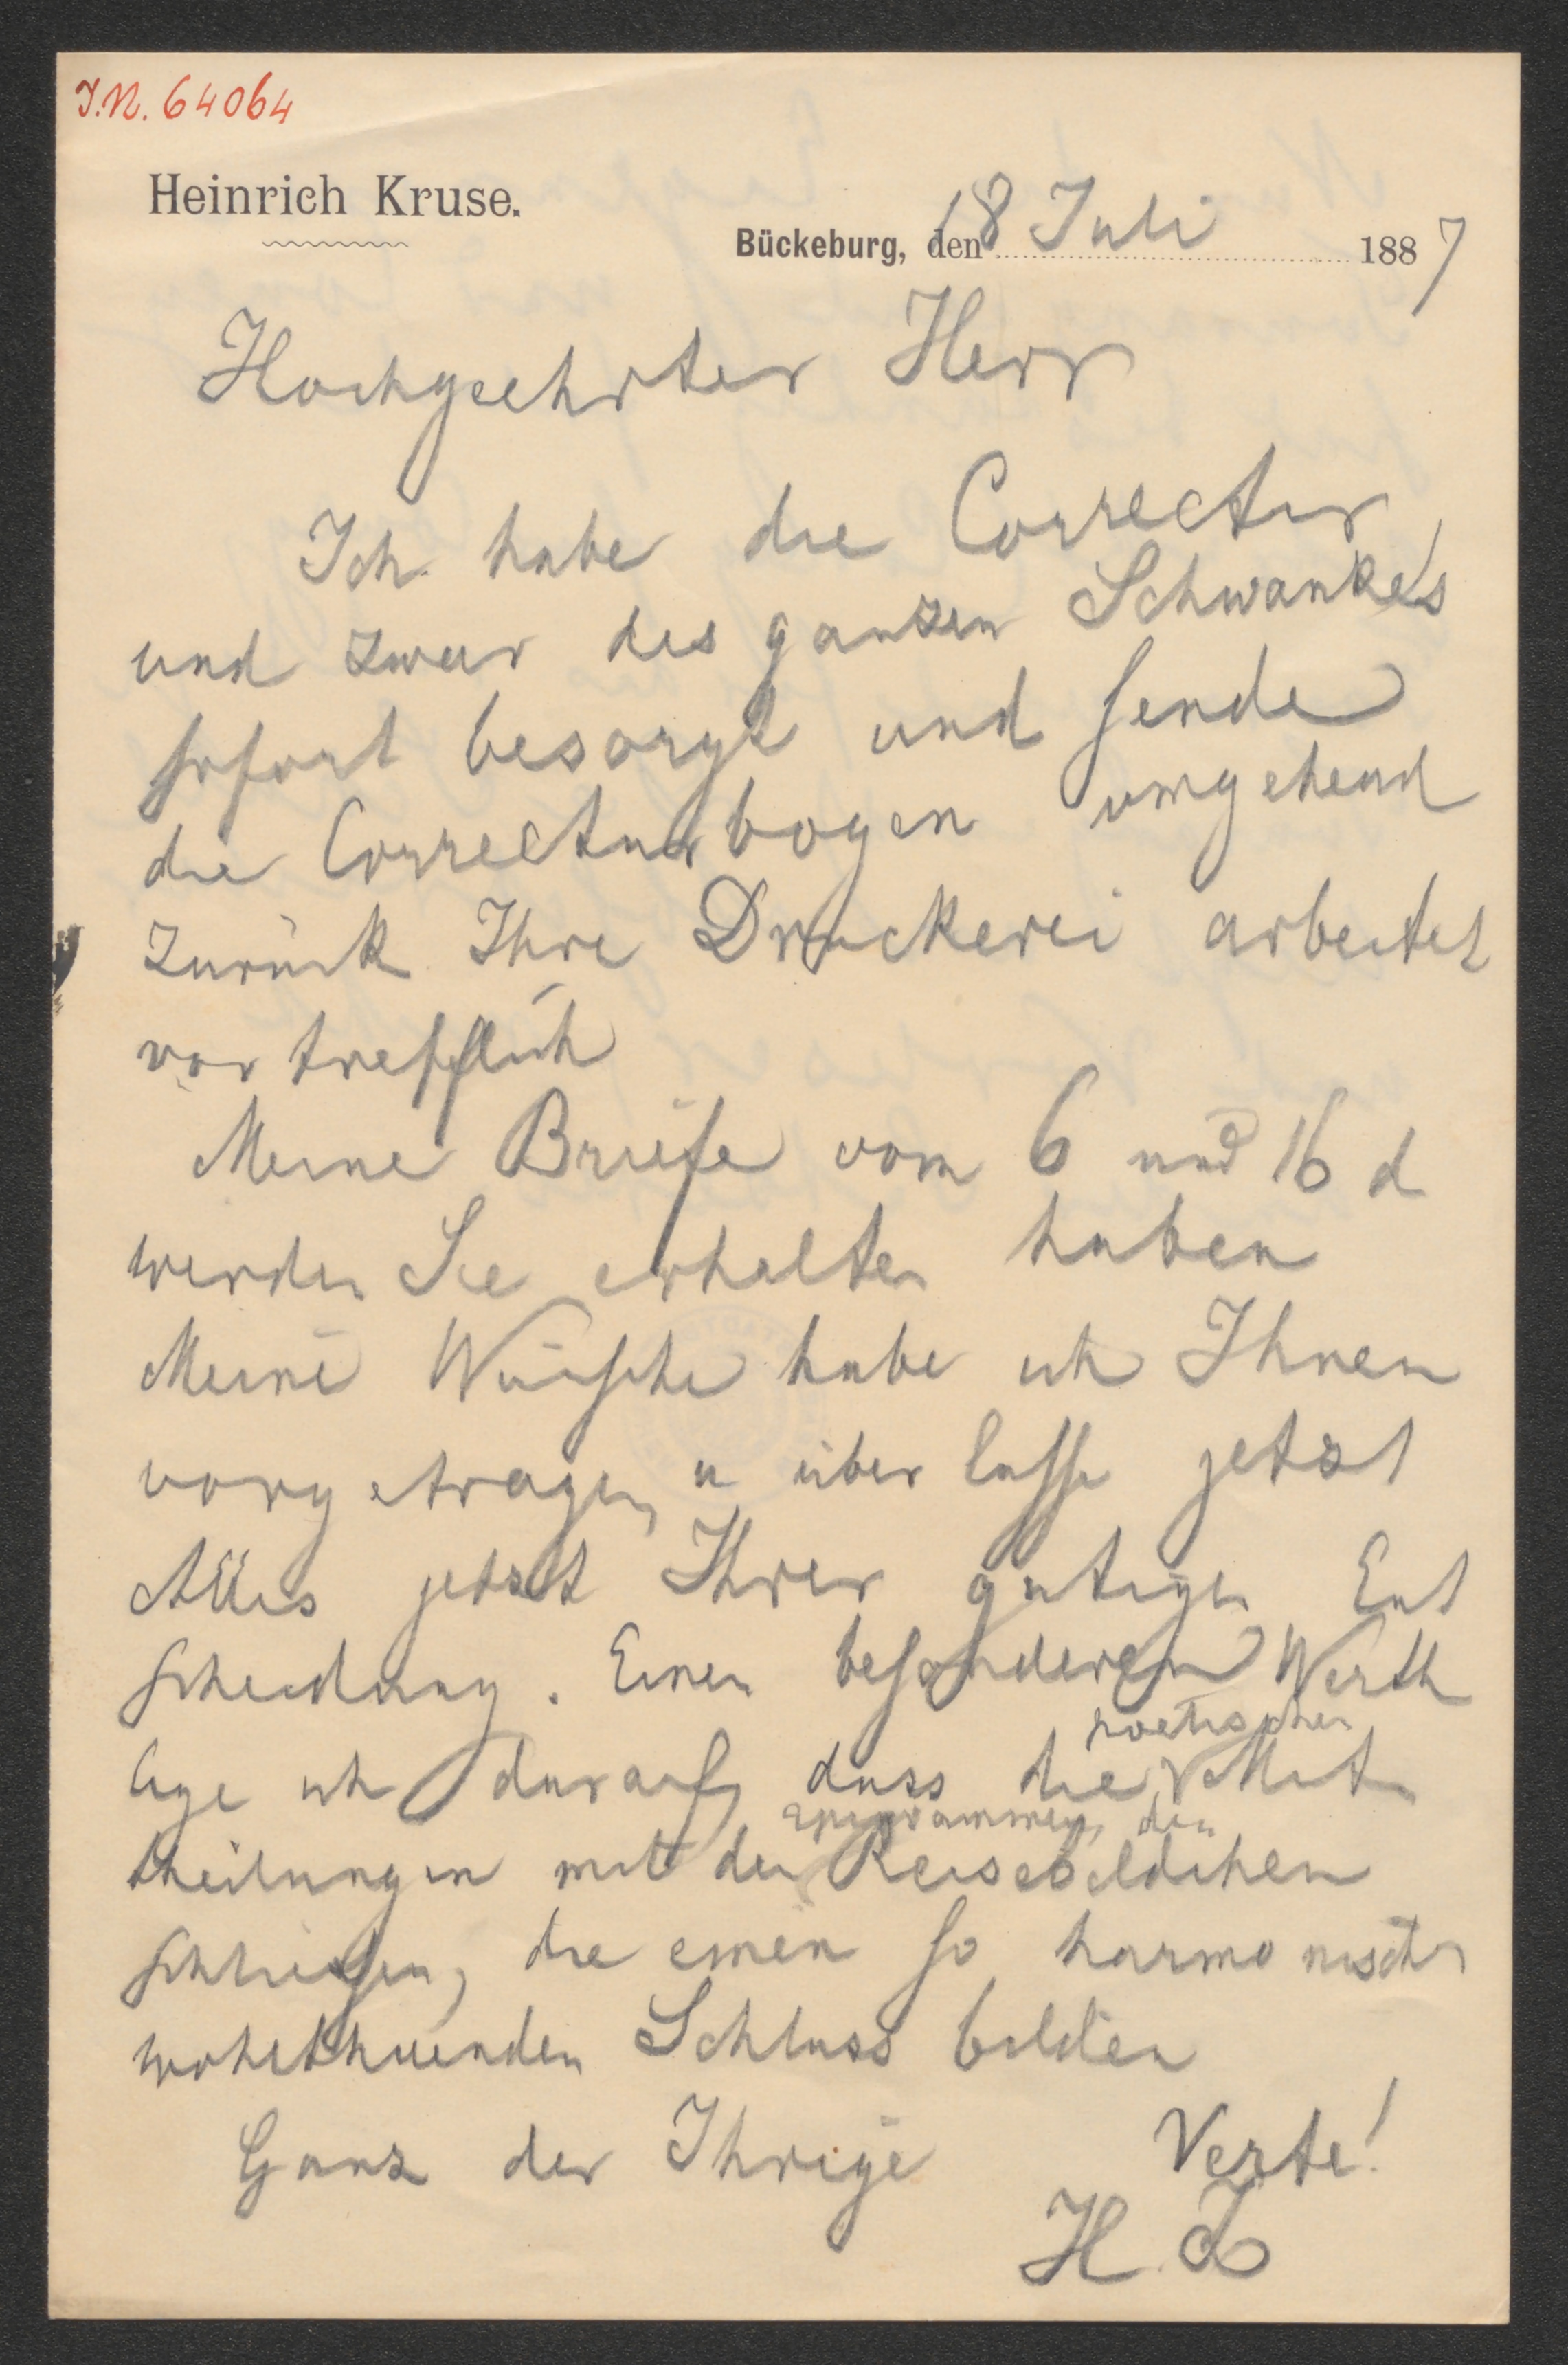 J.N. 64064
Heinrich Kruse.
Bückeburg, den 18 Juli 1887
Hochgeehrter Herr
Ich habe die Correctur,
und zwar des ganzen Schwankes
sofort besorgt und sende
die Correcturbogen umgehend
zurück. Ihre Druckerei arbeitet
vortrefflich
Meine Briefe vom 6 und 16 d
werden Sie erhalten haben
Meine Wünsche habe ich Ihnen
vorgetragen u überlasse jetzt
Alles jetzt Ihrer gütigen Ent
scheidung. Einen besonderen Werth
poetischen
lege ich darauf dass die Mit
epigrammen, den
theilungen mit den Reisebildchen
schliessen, die einen so harmonisch
wohlthuenden Schluss bilden
Ganz der Ihrige Verte!
H.